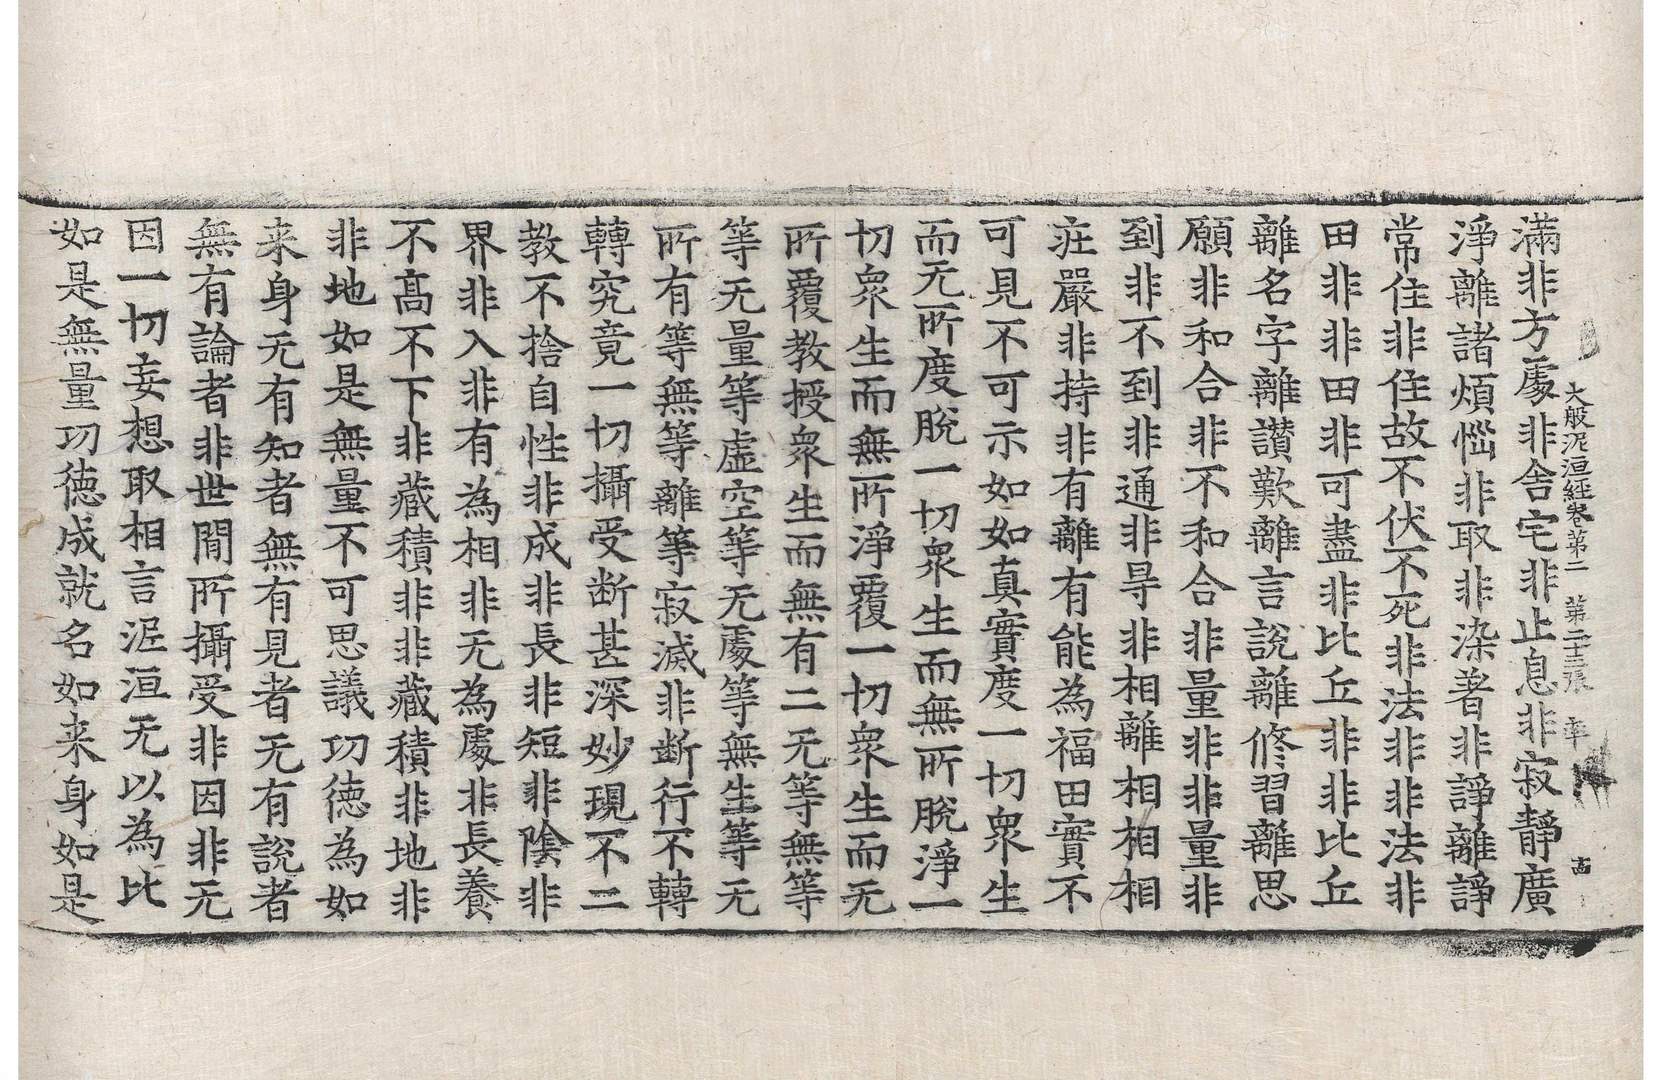 大般泥洹經卷第二 第二十三張 率
滿非方處非舍宅非止息非寂靜廣
淨離諸煩惱非取非染著非諍離諍
常住非住故不伏不死非法非非法非
田非非田非可盡非比丘非非比丘
離名字離讚歎離言說離修習離思
願非和合非不和合非量非非量非
到非不到非通非㝵非相離相相相
莊嚴非持非有離有能為福田實不
可見不可示如如真實度一切衆生
而无所度脫一切衆生而無所脫淨一
切衆生而無所淨覆一切衆生而无
所覆教授衆生而無有二无等無等
等无量等虛空等无處等無生等无
所有等無等離等寂滅非斷行不轉
轉究竟一切攝受断甚深妙現不二
教不捨自性非成非長非短非陰非
界非入非有為相非无為處非長養
不髙不下非藏積非非藏積非地非
非地如是無量不可思議功徳為如
来身无有知者無有見者无有說者
無有論者非世間所攝受非因非无
因一切妄想取相言泥洹无以為比
如是無量功徳成就名如来身如是